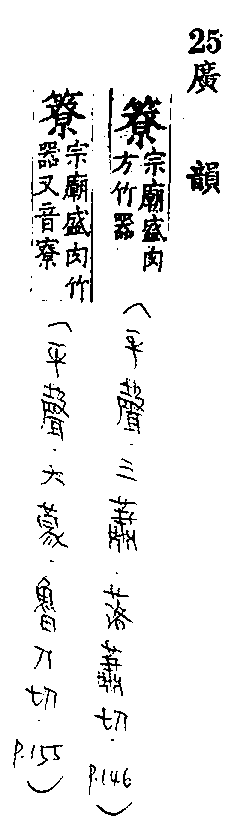 25廣韻
簝宗廟盛肉方竹器
(平聲.三蕭.落蕭切.P.146)
簝宗廟盛肉竹器又音寮
(平聲.六豪.魯刀切.P.155)